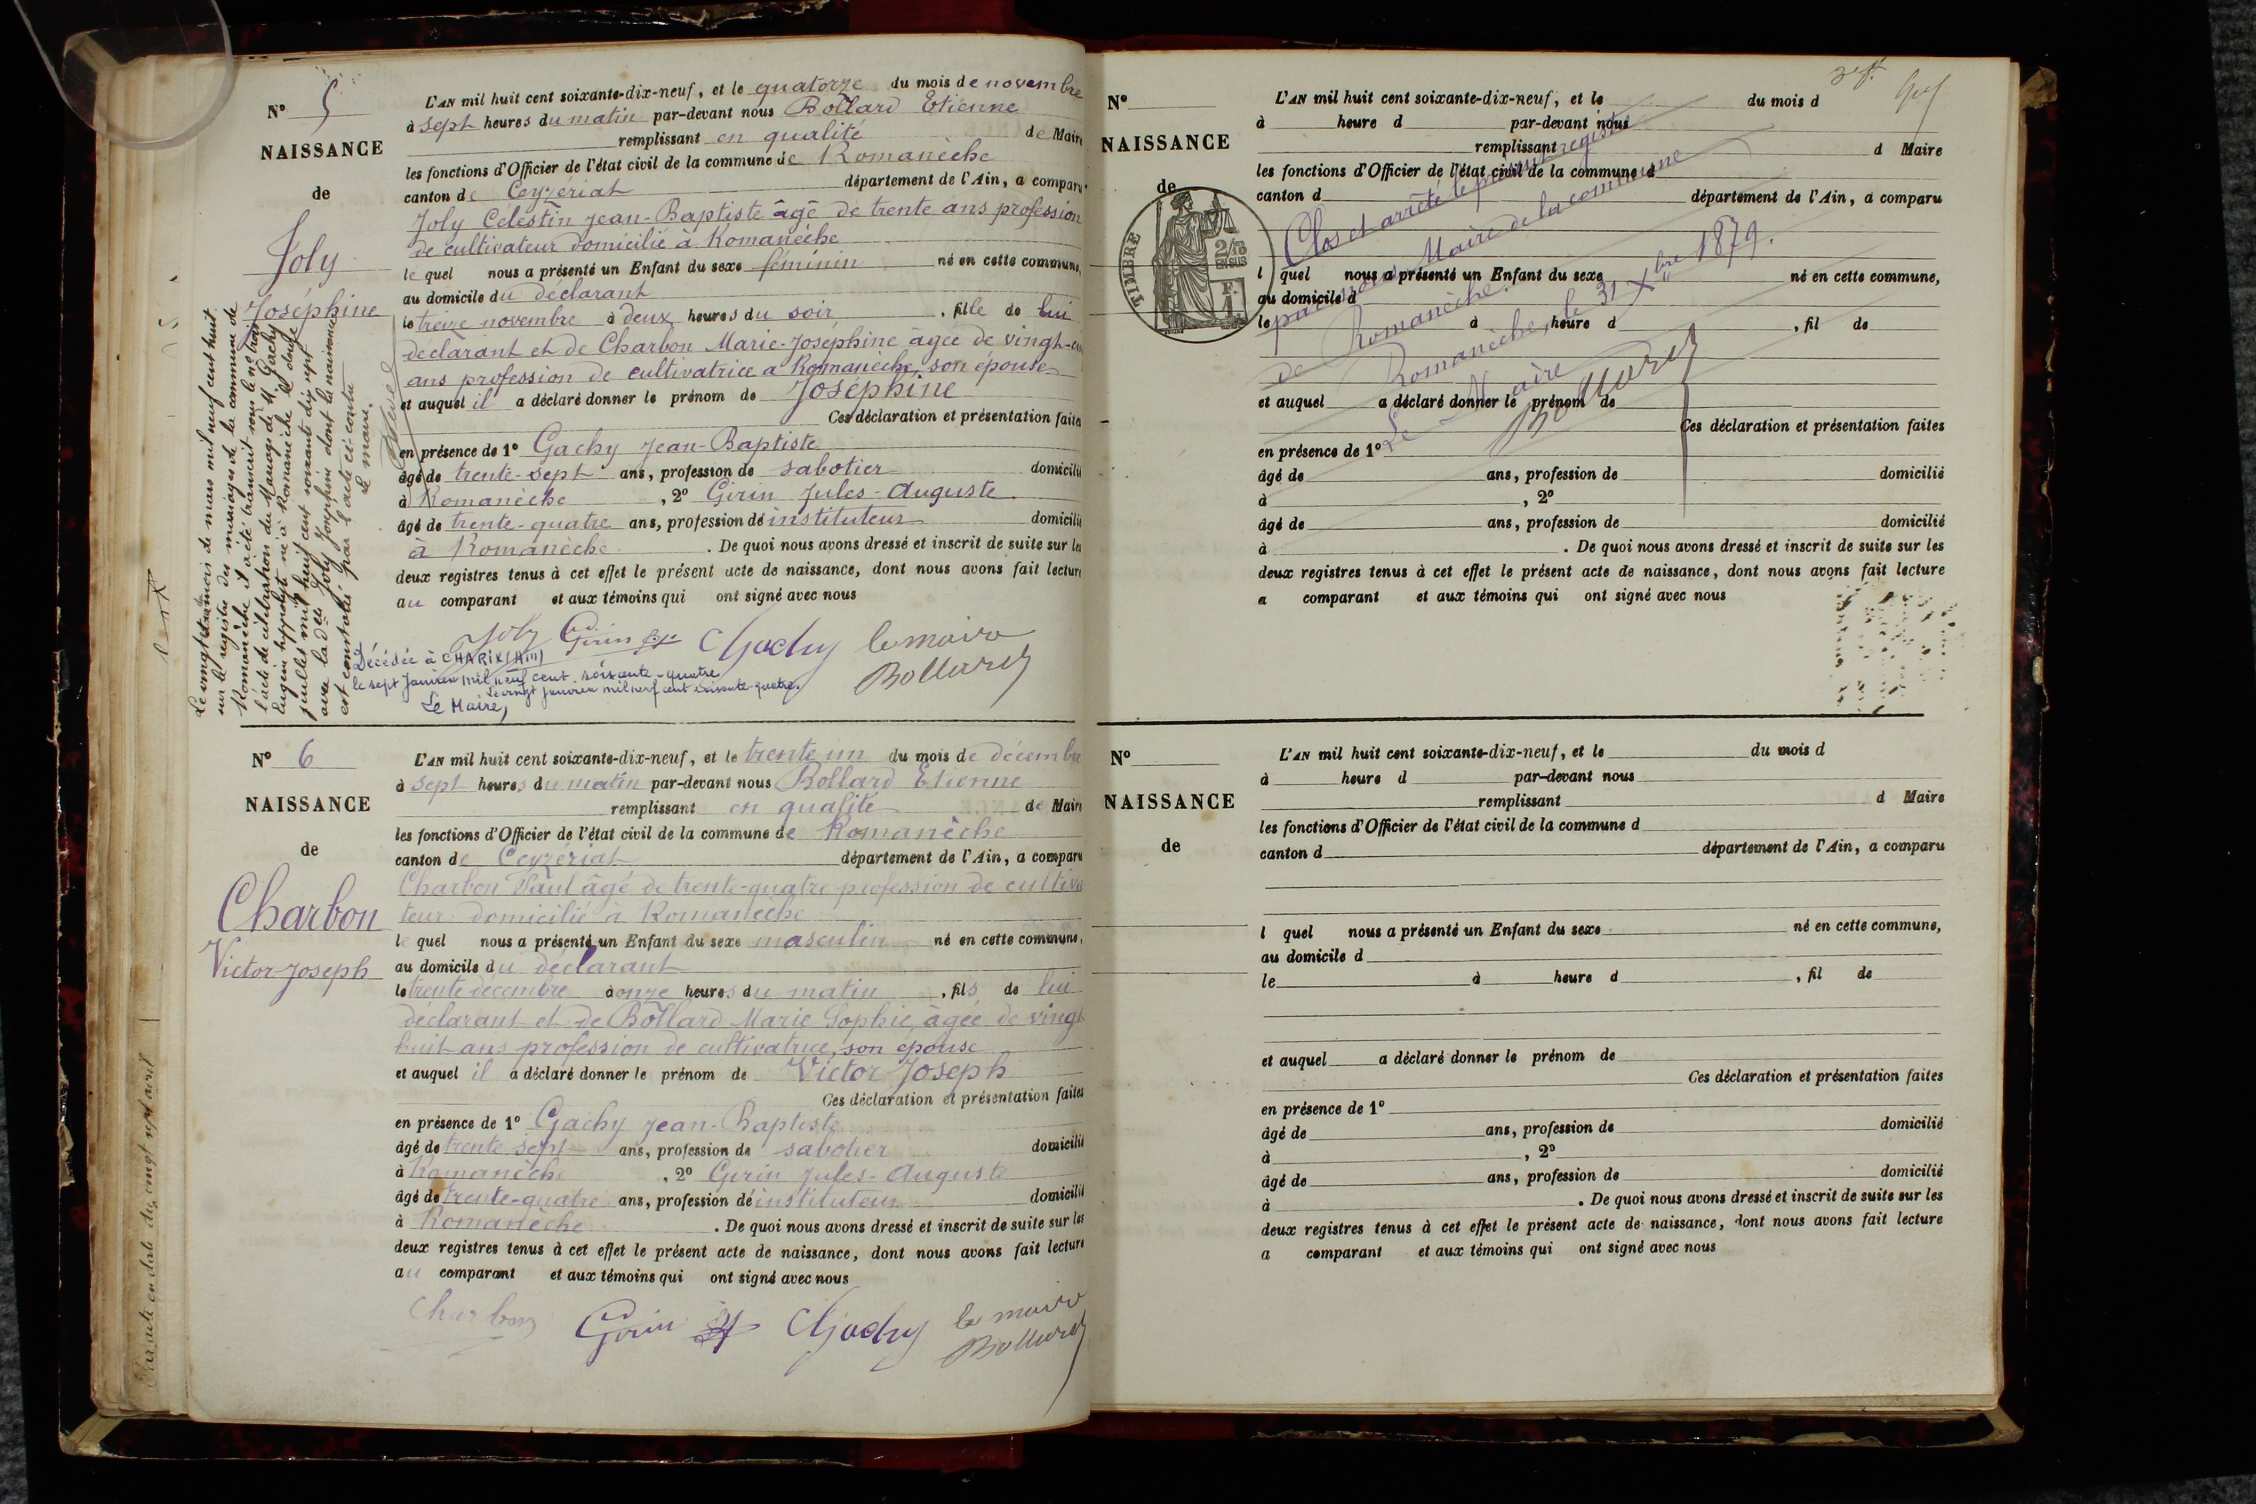 N° 5
NAISSANCE
de
Joly
Joséphine
L'AN mil huit cent soixante-dix-neuf, et le quatorze du mois de novembre
à sept heures du matin par-devant nous Bollard Etienne
remplissant en qualité de Maire
les fonctions d'Officier de l'état civil de la commune de Romanèche
canton de Ceyzériat département de l'Ain, a comparu
Joly Célestin Jean-Baptiste âgé de trente ans profession
de cultivateur domicilié à Romanèche
le quel nous a présenté un Enfant du sexe féminin né en cette commune,
au domicile du déclarant
le treize novembre à deux heures du soir, fille de lui
déclarant et de Charbon Marie-Joséphine âgée de vingt-
ans profession de cultivatrice a Romanèche, son épouse
et auquel il a déclaré donner le prénom de Joséphine
Ces déclaration et présentation faites
en présence de 1° Gachy Jean-Baptiste
âgé de trente-sept ans, profession de sabotier domicilié
à Romanèche, 2° Girin Jules-Auguste
âgé de trente-quatre ans, profession de instituteur domicilié
à Romanèche. De quoi nous avons dressé et inscrit de suite sur les
deux registres tenus à cet effet le présent acte de naissance, dont nous avons fait lecture
au comparant et aux témoins qui ont signé avec nous
Joly Girin Gachy le maire
Bollard
Décédée à CHARIX (Ain)
le sept Janvier mil neuf cent soixante-quatre
Le vingt janvier mil neuf cent soixante-quatre.
Le Maire,
Le vingt mars mil neuf cent huit
sur le registre des mariages de la commune de
Romanèche il a été transcrit sous le n° trois
l'acte de célébration du Mariage de M. Gachy
Eugène hippolyte né à Romanèche le douze
juillet mil huit cent soixante dix sept
avec la dlle Joly Joséphine dont la naissance
est constatée par l'acte ci-contre
Le maire,
N° 6
NAISSANCE
de
Charbon
Victor-Joseph
L'AN mil huit cent soixante-dix-neuf, et le trente un du mois de décembre
à sept heures du matin par-devant nous Bollard Etienne
remplissant en qualité de Maire
les fonctions d'Officier de l'état civil de la commune de Romanèche
canton de Ceyzériat département de l'Ain, a comparu
Charbon Paul âgé de trente-quatre profession de cultiva
teur domicilié à Romanèche
le quel nous a présenté un Enfant du sexe masculin né en cette commune,
au domicile du déclarant
le trente décembre à onze heures du matin, fils de lui
déclarant et de Bollard Marie Sophie, âgée de vingt
huit ans profession de cultivatrice, son épouse
et auquel il a déclaré donner le prénom de Victor Joseph
Ces déclaration et présentation faites
en présence de 1° Gachy Jean-Baptiste
âgé de trente sept ans, profession de sabotier domicilié
à Romanèche, 2° Girin Jules-Auguste
âgé de trente-quatre ans, profession de instituteur domicilié
à Romanèche. De quoi nous avons dressé et inscrit de suite sur les
deux registres tenus à cet effet le présent acte de naissance, dont nous avons fait lecture
au comparant et aux témoins qui ont signé avec nous
Charbon Girin Gachy le maire
Bollard
N°
NAISSANCE
de
TIMBRE
2/10
EN SUS
L'AN mil huit cent soixante-dix-neuf, et le du mois d
à heure d par-devant nous
remplissant d Maire
les fonctions d'Officier de l'état civil de la commune d
canton d département de l'Ain, a comparu
l quel nous a présenté un Enfant du sexe né en cette commune,
au domicile d
le à heure d , fil de
et auquel a déclaré donner le prénom de
Ces déclaration et présentation faites
en présence de 1°
âgé de ans, profession de domicilié
à , 2°
âgé de ans, profession de domicilié
à . De quoi nous avons dressé et inscrit de suite sur les
deux registres tenus à cet effet le présent acte de naissance, dont nous avons fait lecture
a comparant et aux témoins qui ont signé avec nous
Clos et arrêté le présent registre
par nous Maire de la commune
de Romanèche.
Romanèche, le 31 Xbre 1879.
Le Maire
Bollard
N°
NAISSANCE
de
L'AN mil huit cent soixante-dix-neuf, et le du mois d
à heure d par-devant nous
remplissant d Maire
les fonctions d'Officier de l'état civil de la commune d
canton d département de l'Ain, a comparu
l quel nous a présenté un Enfant du sexe né en cette commune,
au domicile d
le à heure d , fil de
et auquel a déclaré donner le prénom de
Ces déclaration et présentation faites
en présence de 1°
âgé de ans, profession de domicilié
à , 2°
âgé de ans, profession de domicilié
à . De quoi nous avons dressé et inscrit de suite sur les
deux registres tenus à cet effet le présent acte de naissance, dont nous avons fait lecture
a comparant et aux témoins qui ont signé avec nous